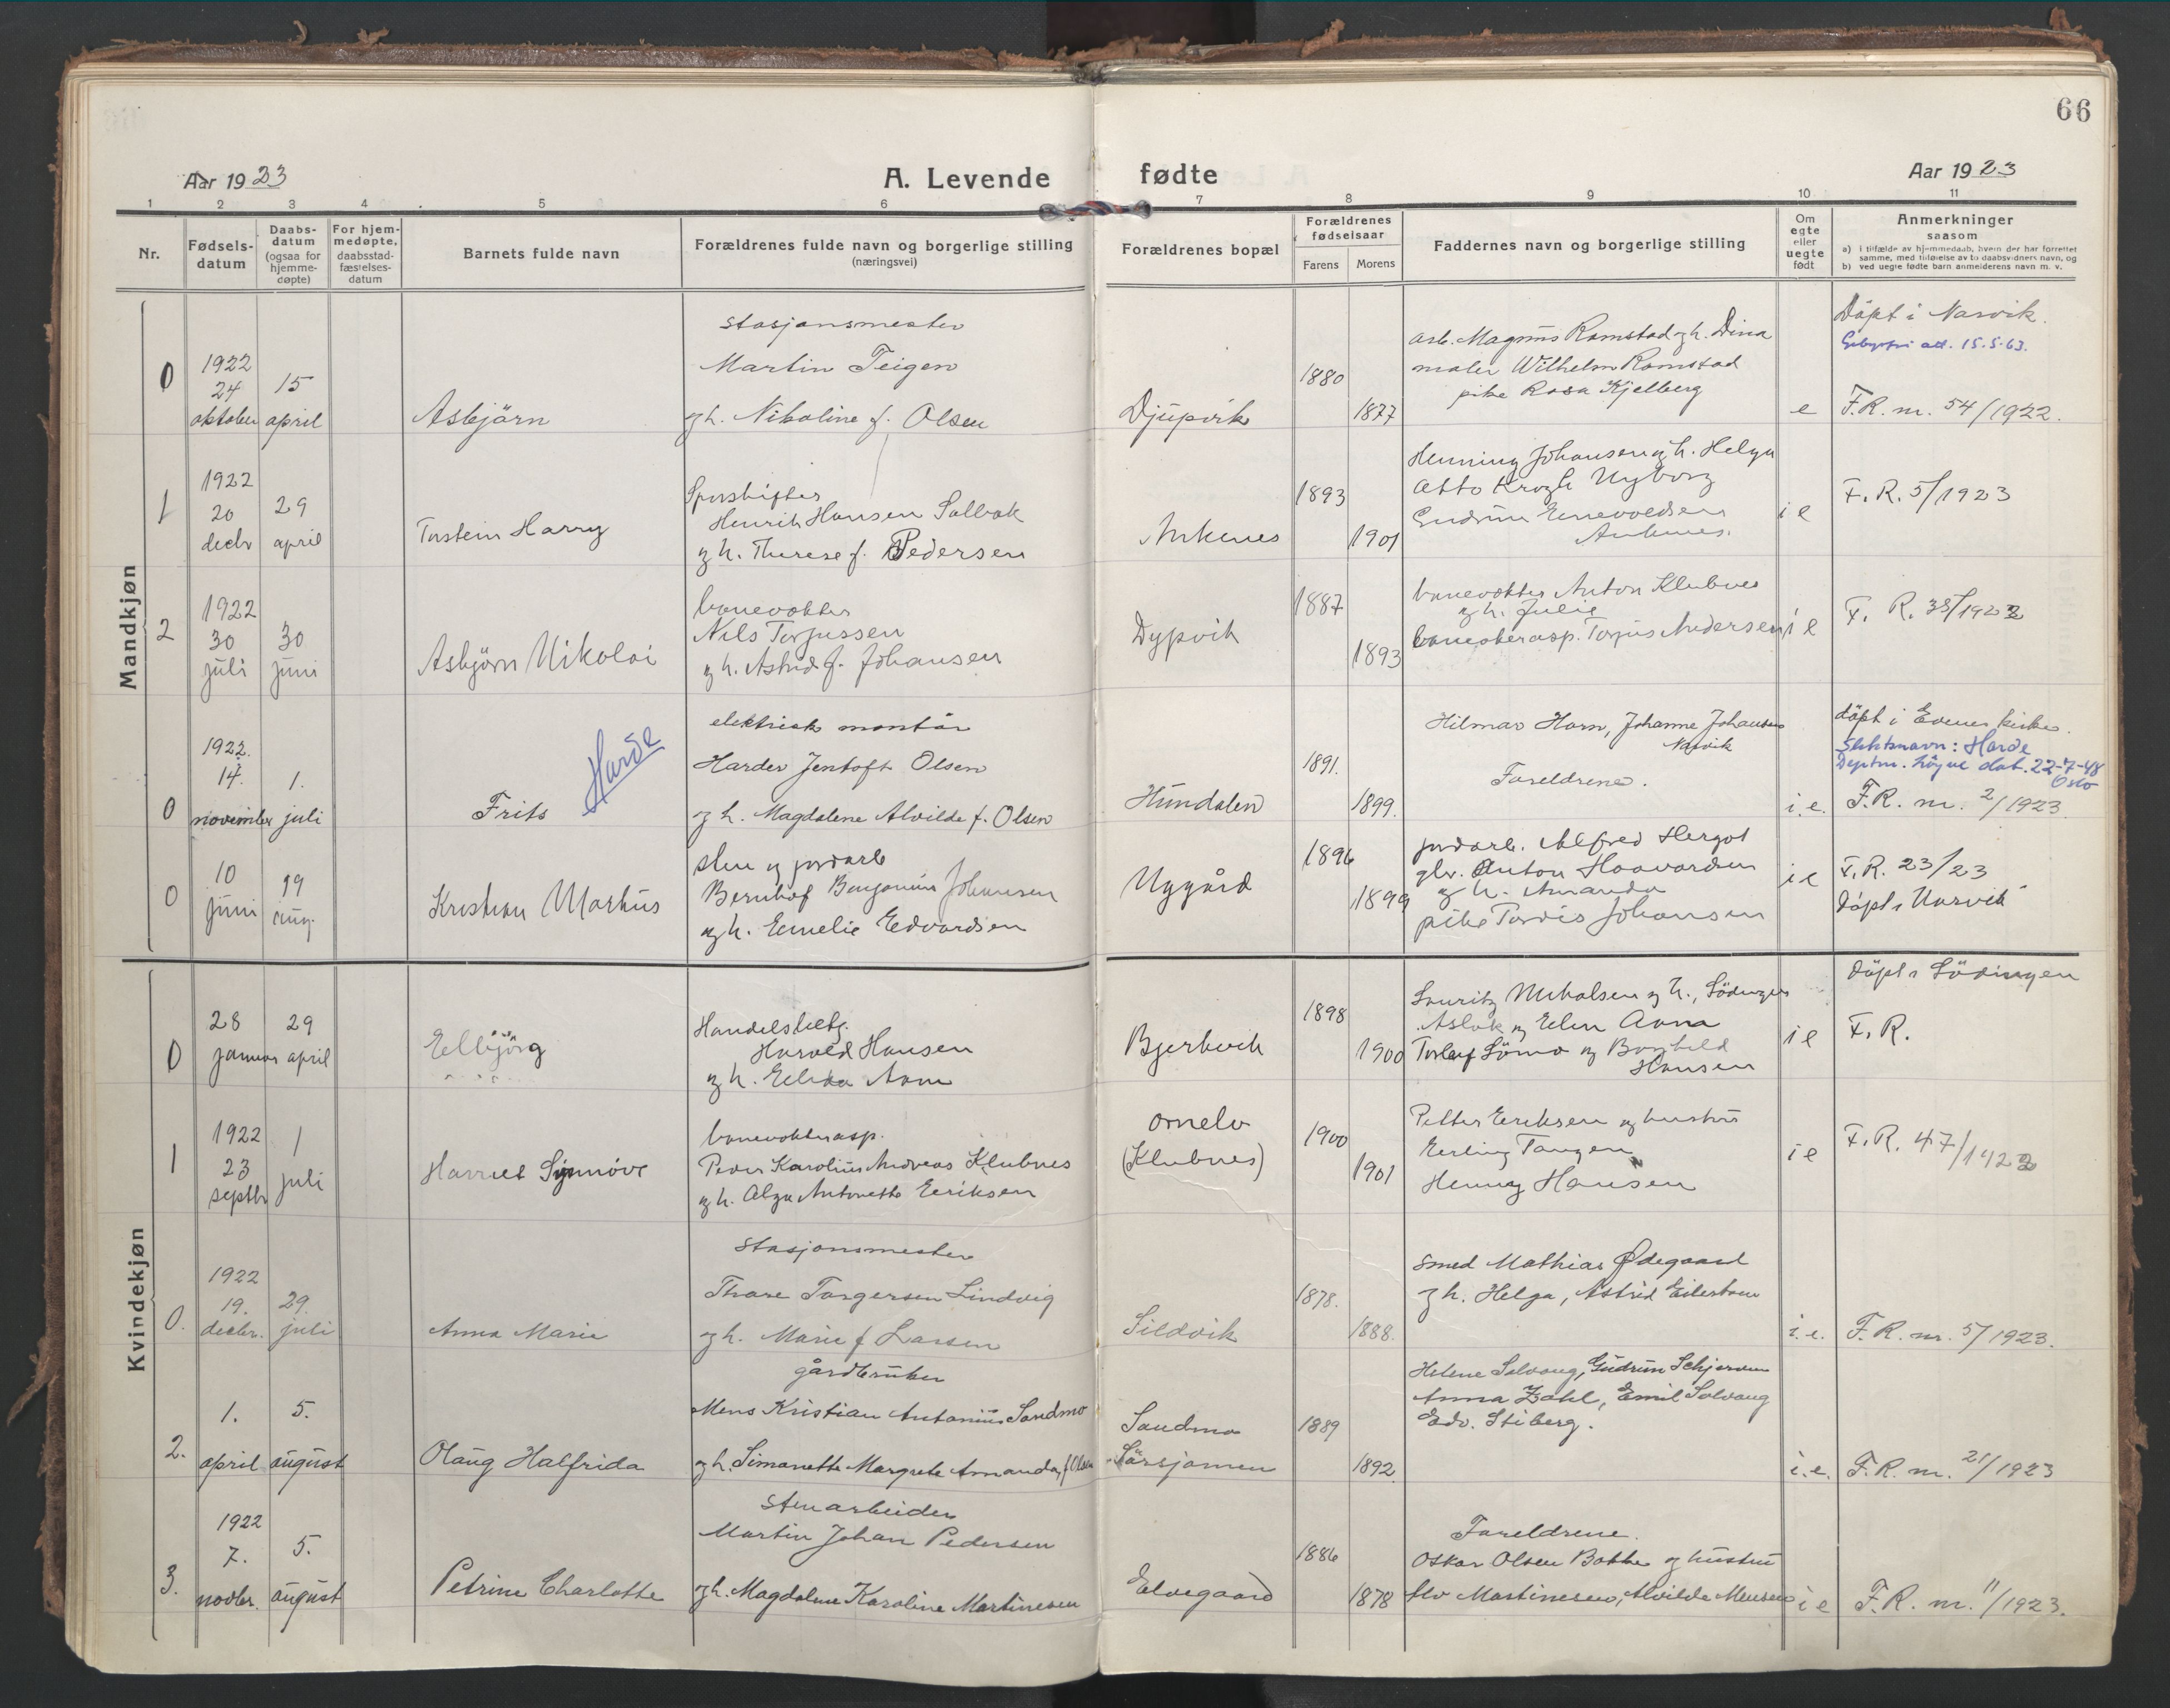 66
Aar 1923
A. Levende fødte
Aar 1923
1 2 3 4 5 6 7 8 9 10 11
Nr.
Fødsels-
datum
Daabs-
datum
(ogsaa for
hjemme-
døpte)
For hjem-
medøpte,
daabsstad-
fæstelses-
datum
Barnets fulde navn
Forældrenes fulde navn og borgerlige stilling
(næringsvei)
Forældrenes bopæl
Forældrenes
fødselsaar
Farens
Morens
Faddernes navn og borgerlige stilling
Om
egte
eller
uegte
født
Anmerkninger
saasom
a) i tilfælde av hjemmedaab, hvem der har forrettet
samme, med tilføielse av to daabsvidners navn, og
b) ved uegte fødte barn anmelderens navn m. v.
Mandkjøn
0
1922
24
oktober
15
april
Asbjörn
stasjonsmester
Martin Teigen
og h. Nikoline f. Olsen
Djupvik
1880
1877
arb. Magnus Ramstad og h. Dina
maler Wilhelm Ramstad
pike Rosa Kjelberg
e
Döpt i Narvik.
att. 15.5.63.
F.R. nr. 54/1922.
1
1922
20
decbr
29
april
Torstein Harry
Sporskifter
Henrik Hansen Solbak
og h. Therese f. Pedersen
Ankenes
1893
1901
Henning Johansen og h. Helga
Otto Krogh Nyborg
Gudrun Enevoldsen
Ankenes.
i e
F. R. 5/1923
2
1922
30
juli
30
juni
Asbjörn Nikolai
banevokter
Nils Torjussen
og h. Astrid f. Johansen
Dypvik
1887
1893
banevokter Anton Klubnes
og h. Julie
Torjus Andersen
i e
F. R. 38/1922
0
1922.
14.
november
1.
juli
Frits
Harde
elektrisk montör
Harder Jentoft Olsen
og h. Magdalene Alvilde f. Olsen
Hundalen
1891.
1899.
Hilmar Horn, Johanne Johansen
Narvik
Foreldrene.
i. e.
döpt i Evenes kirke.
Slektsnavn: Harde
dat. 22-7-48
Oslo
F.R. nr. 2/1923
0
10
juni
19
aug.
Kristian Markus
sten og jordarb
Bernhof Benjamin Johansen
og h. Emelie Edvardsen
Nygård
1896
1899
jordarb. Alfred Hergot
Anton Haavardsen
og h. Amanda
pike Tordis Johansen
i e
F.R. 23/23
döpt i Narvik
Kvindekjøn
0
28
januar
29
april
Ellbjörg
Handelsbetj.
Harald Hansen
og h. Anna
Bjerkvik
1898
1900
Lauritz Nikolsen og h., Lödingen
Aslak og Anna
Torleif Sörmo og Borghild
Hansen
i e
döpt i Lödingen
F. R.
1
1922
23
septbr
1
juli
Harriet Synnöve
banevokterasp.
Peder Karolius Andreas Klubnes
og h. Olga Antonette Eriksen
Ornelv
(Klubnes)
1900
1901
Petter Eriksen og hustru
Erling Tangen
Henny Hansen
i e
F.R. 47/1922
0.
1922
19.
decbr.
29.
juli
Anna Marie
Stasjonsmester
Thore Torgersen Lindvig
og h. Marie f Larsen
Sildvik
1878.
1888.
smed Mathias Ødegaard
og h. Helga, Astrid
i. e.
F. R. nr. 5/1923.
2.
1.
april
5.
august
Olaug Halfrida
gårdbruker
Mons Kristian Antonius Sandmo
og h. Simonette Margrete Amanda, f Olsen
Sandmo
1889
1892.
Helene Solvang, Gudrun Schjerven
Anna Zahl, Emil Solvang
Edv. Stiberg.
i. e.
F.R. nr. 21/1923
3.
1922
7.
novbr.
5.
august
Petrine Charlotte
Stenarbeider
Martin Johan Pedersen
og h. Magdalene Karoline Martinesen
Elvegaard
1886
1878
Foreldrene.
Oskar Olsen Bakke og hustru
Martinesen, Alvilde Monsen
i e
F.R. nr. 11/1923.